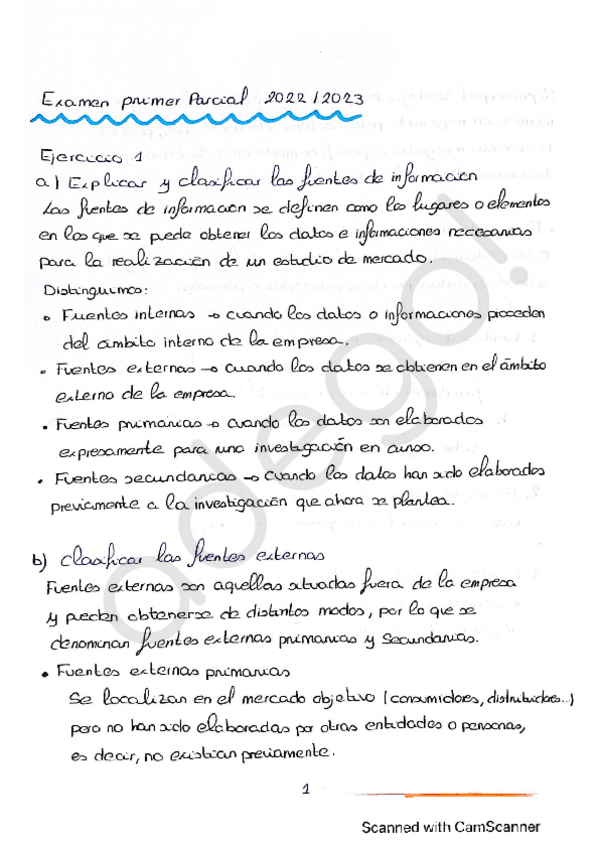 Examen primer Parcial 2022/2023
Ejercicio 1
a) Explicar y clasificar las fuentes de información
Las fuentes de información se definen como los lugares o elementos
en los que se puede obtener los datos e informaciones necesarias
para la realización de un estudio de mercado.
Distinguimos:
• Fuentes internas → cuando los datos o informaciones proceden
del ámbito interno de la empresa.
• Fuentes externas → cuando los datos se obtienen en el ámbito
externo de la empresa.
• Fuentes primarias → cuando los datos son elaborados
expresamente para una investigación en curso.
• Fuentes secundarias → cuando los datos han sido elaborados
previamente a la investigación que ahora se plantea.
b) clasificar las fuentes externas
Fuentes externas son aquellas situadas fuera de la empresa
y pueden obtenerse de distintos modos, por lo que se
denominan fuentes externas primarias y secundarias.
• Fuentes externas primarias
Se localizan en el mercado objetivo (consumidores, distribuidores...)
pero no han sido elaboradas por otras entidades o personas,
es decir, no existían previamente.
1
Scanned with CamScanner
adego!